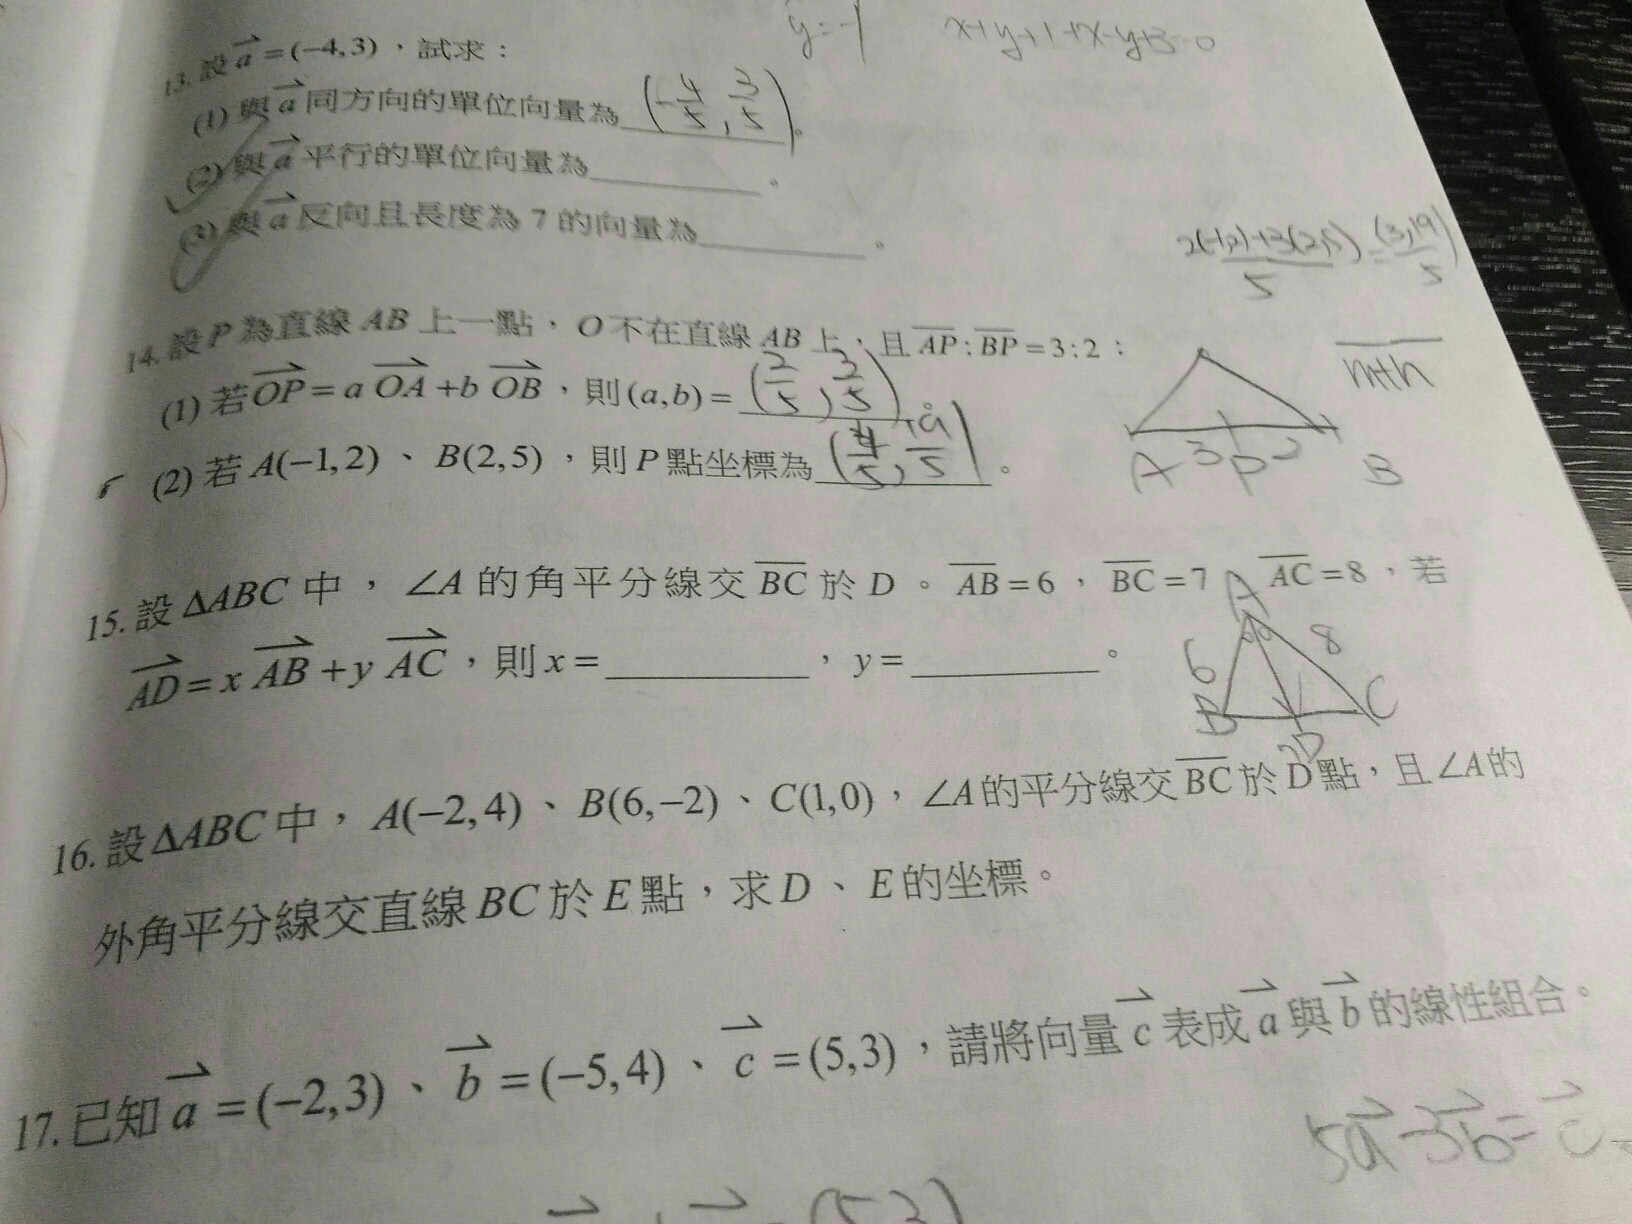 y=-1
x+y+1+x-y+3=0
13. 設a=(-4,3)，試求：
(1) 與a同方向的單位向量為 (-4/5, 3/5)。
(2) 與a平行的單位向量為________。
(3) 與a反向且長度為 7 的向量為________。
2(-1,2)+3(2,5)/5 = (3,19)/5
14. 設P為直線AB上一點，O不在直線AB上，且AP:BP=3:2：
m+n
(1) 若OP=a OA+b OB，則(a,b)= (2/5, 3/5)。
(2) 若A(-1,2)、B(2,5)，則P點坐標為 (4/5, 19/5)。
A 3 P 2 B
15. 設ΔABC中，∠A的角平分線交BC於D。AB=6，BC=7 AC=8，若
AD=x AB+y AC，則x=________，y=________。
A
6 8
B C
D
16. 設ΔABC中，A(-2,4)、B(6,-2)、C(1,0)，∠A的平分線交BC於D點，且∠A的
外角平分線交直線BC於E點，求D、E的坐標。
17. 已知a=(-2,3)、b=(-5,4)、c=(5,3)，請將向量c表成a與b的線性組合。
5a-3b=c
(5,3)